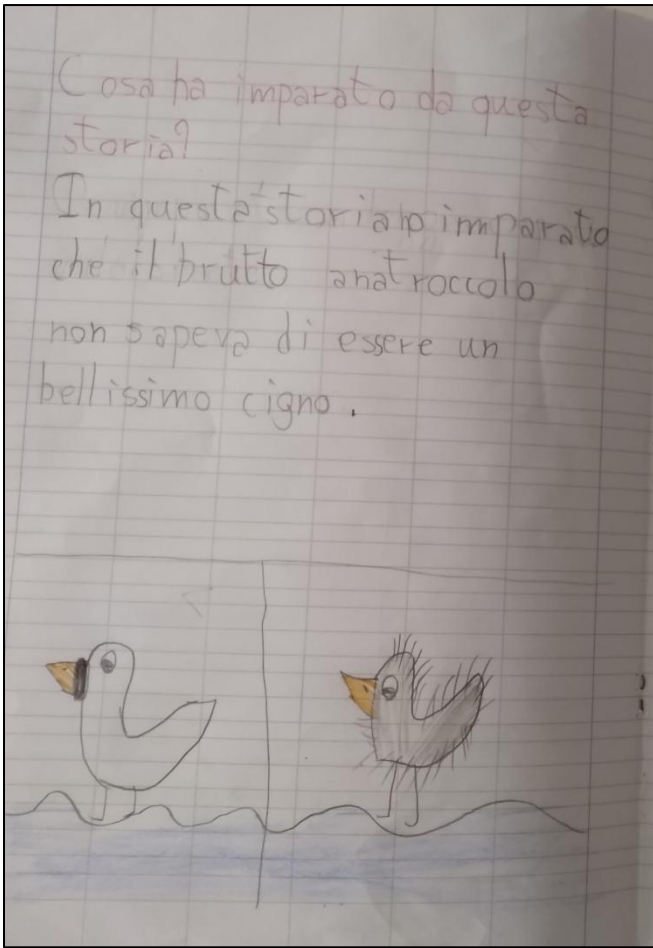 Cosa ha imparato da questa
storia?
In questa storia ho imparato
che il brutto anatroccolo
non sapeva di essere un
bellissimo cigno.